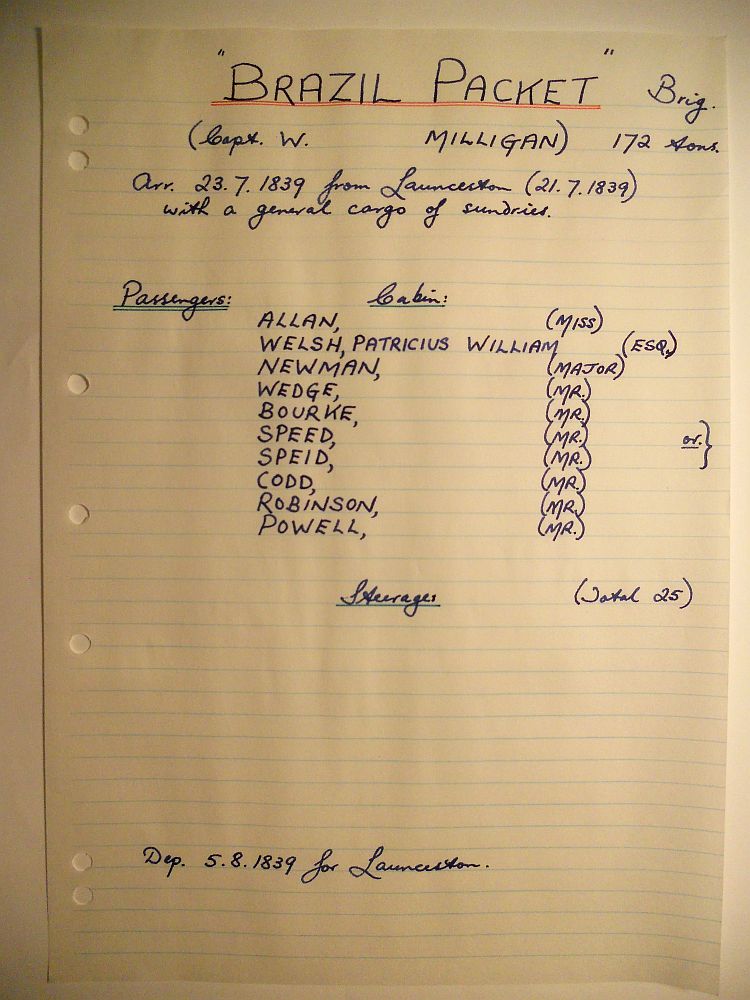 "BRAZIL PACKET" Brig.
(Capt. W. MILLIGAN) 172 tons.
Arr. 23.7.1839 from Launceston (21.7.1839)
with a general cargo of sundries.
Passengers: Cabin:
ALLAN, (MISS)
WELSH, PATRICIUS WILLIAM (ESQ.)
NEWMAN, (MAJOR)
WEDGE, (MR.)
BOURKE, (MR.)
SPEED, (MR.) or. }
SPEID, (MR.)
CODD, (MR.)
ROBINSON, (MR.)
POWELL, (MR.)
Steerage: (Total 25)
Dep. 5.8.1839 for Launceston.